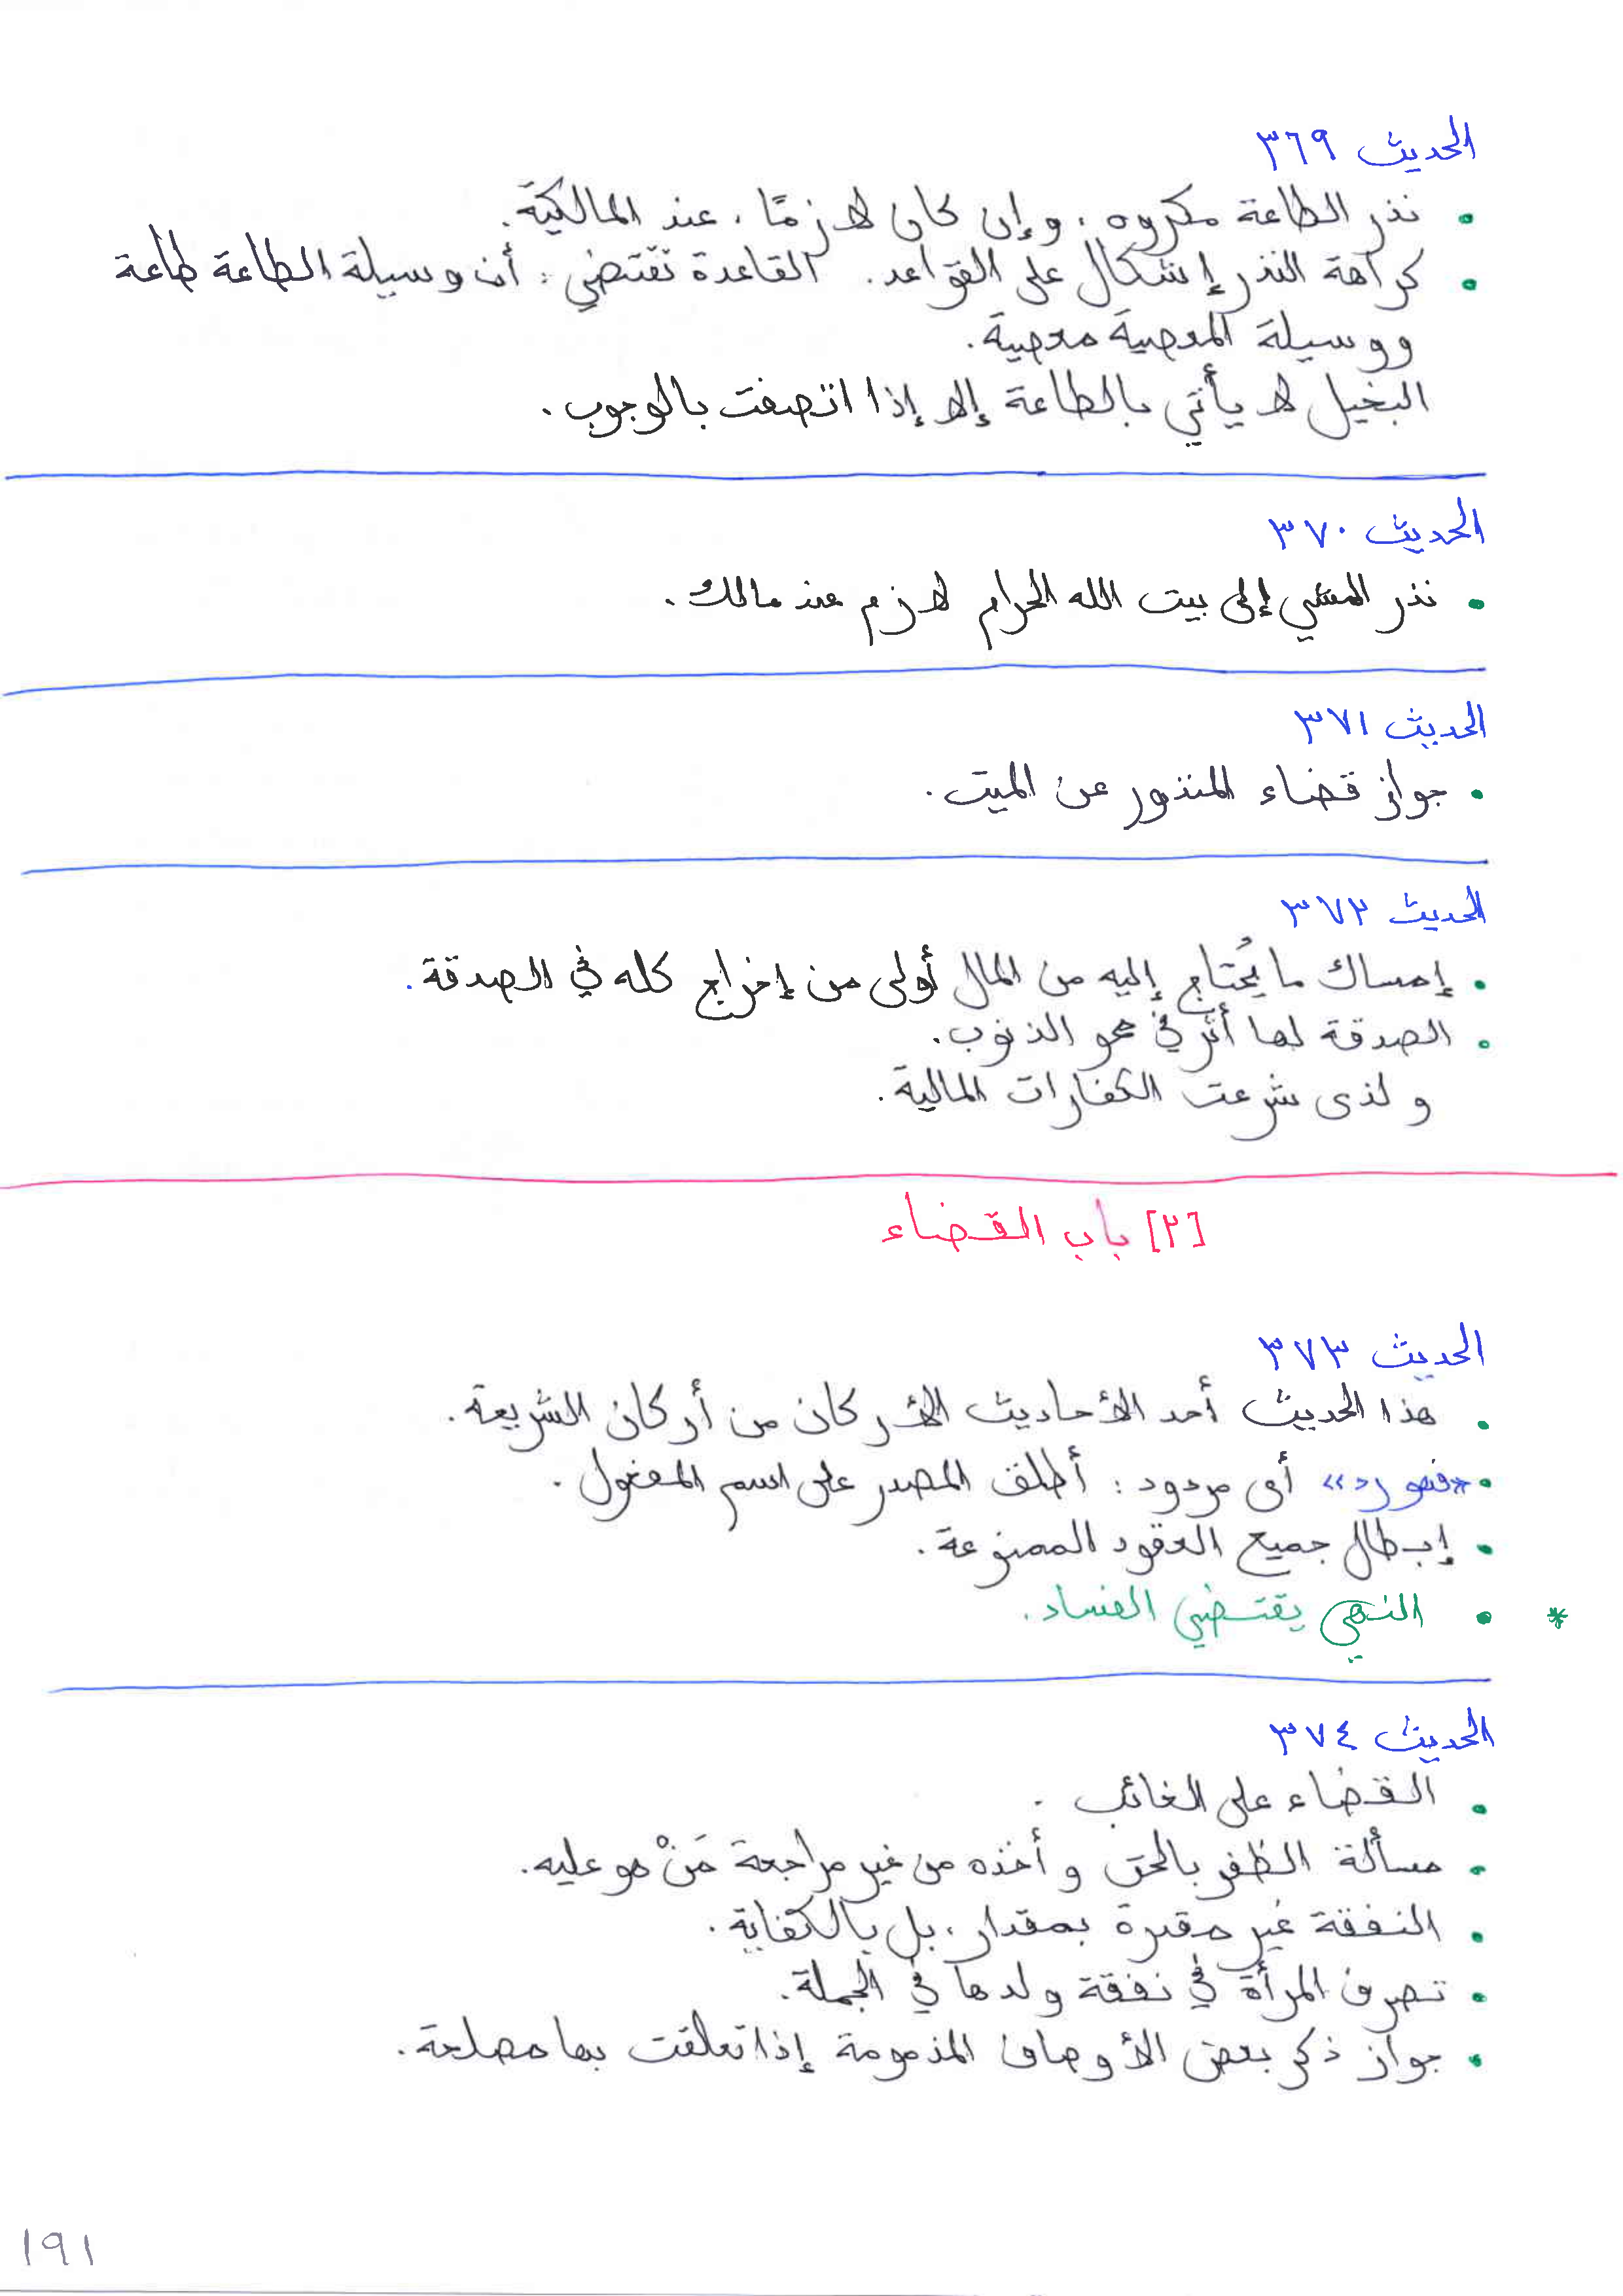 الحديث ٣٦٩
• نذر الطاعة مكروه، وإن كان لازمًا، عند المالكية.
• كراهة النذر إشكال على القواعد. القاعدة تقتضي: أن وسيلة الطاعة طاعة
ووسيلة المعصية معصية.
البخيل لا يأتي بالطاعة إلا إذا اتصفت بالوجوب.
الحديث ٣٧٠
• نذر المشي إلى بيت الله الحرام لازم عند مالك.
الحديث ٣٧١
• جواز قضاء المنذور عن الميت.
الحديث ٣٧٢
• إمساك ما يُحتاج إليه من المال أولى من إخراج كله في الصدقة.
• الصدقة لها أثر في محو الذنوب.
ولذى شرعت الكفارات المالية.
[٢] باب القضاء
الحديث ٣٧٣
• هذا الحديث أحد الأحاديث الأركان من أركان الشريعة.
• «فهو رد» أي مردود: أطلق المصدر على اسم المفعول.
• إبطال جميع العقود الممنوعة.
* • النهي يقتضي الفساد.
الحديث ٣٧٤
• القضاء على الغائب.
• مسألة الظفر بالحق وأخذه من غير مراجعة مَنْ هو عليه.
• النفقة غير مقدرة بمقدار، بل بالكفاية.
• تصرف المرأة في نفقة ولدها في الجملة.
• جواز ذكر بعض الأوصاف المذمومة إذا تعلقت بها مصلحة.
١٩١